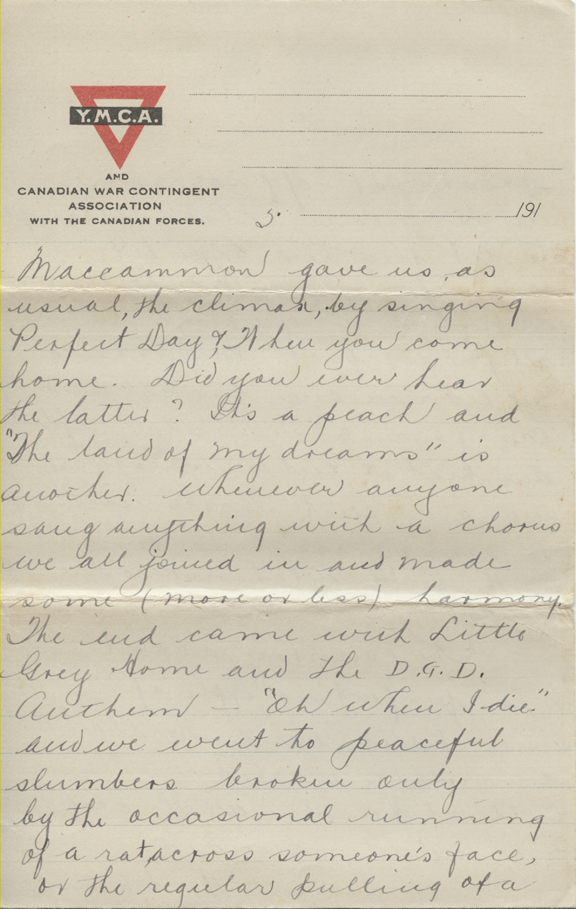 Y.M.C.A.
AND
CANADIAN WAR CONTINGENT
ASSOCIATION
WITH THE CANADIAN FORCES.
5. 191
Maccammon gave us, as
usual, the climax, by singing
Perfect Day & When you come
home. Did you ever hear
the latter? It's a peach and
"The land of my dreams" is
another. Whenever anyone
sang anything with a chorus
we all joined in and made
some (more or less) harmony.
The end came with Little
Grey Home and the D.G.D.
Anthem – "Oh when I die"
and we went to peaceful
slumbers broken only
by the occasional running
of a rat across someone's face,
or the regular pulling of a